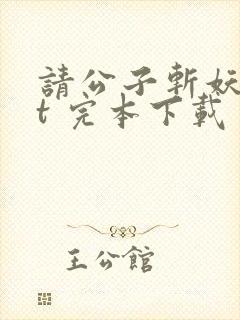 請公子斬妖
t 完本下載
王公館